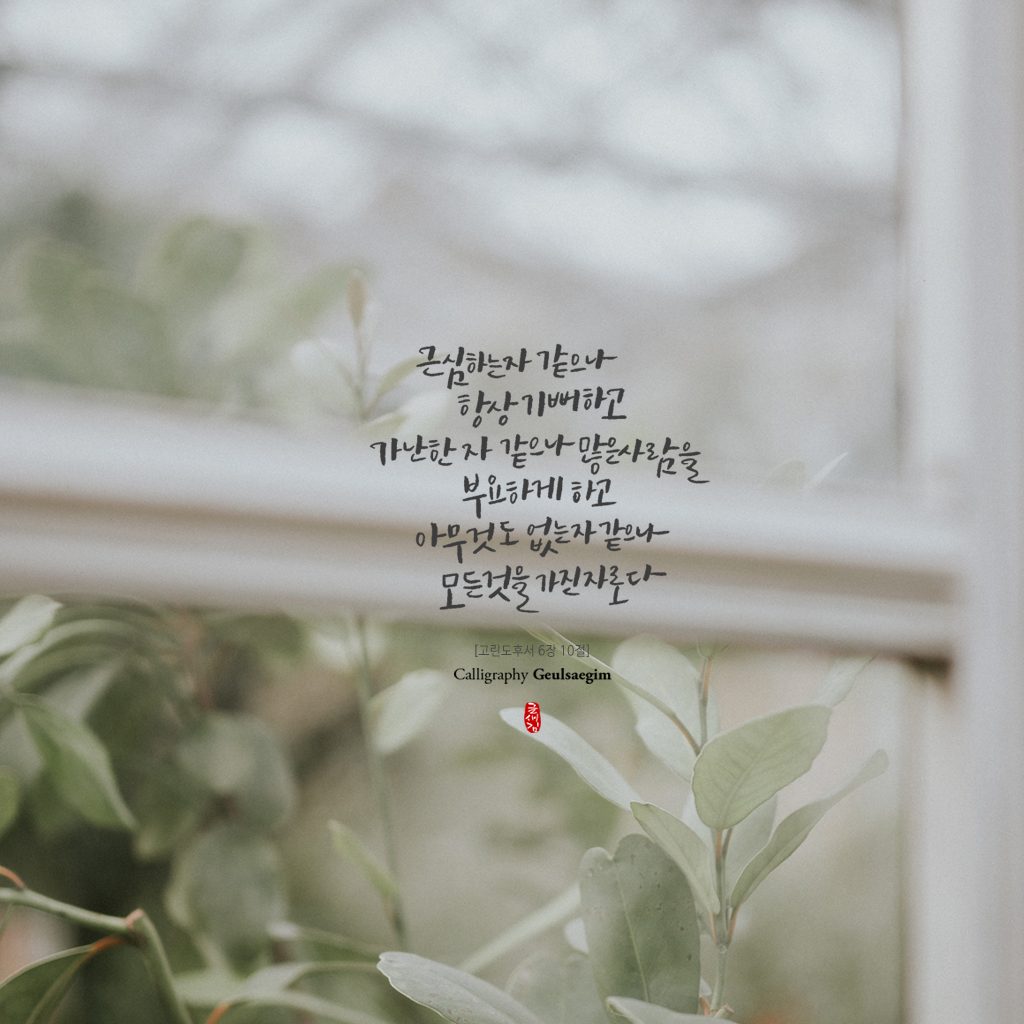 근심하는자 같으나
항상 기뻐하고
가난한 자 같으나 많은사람을
부요하게 하고
아무것도 없는자 같으나
모든것을 가진자로다
[고린도후서 6장 10절]
Calligraphy Geulsaegim
글새김